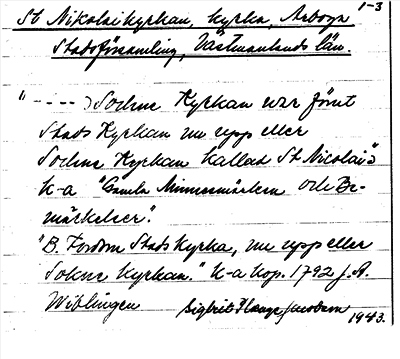 1-3
St Nikolaikyrkan, kyrka, Arboga
Stadsförsamling, Västmanlands län.
"----) Sockne Kyrkan war förut
Stads Kyrkan nu upp eller
Sockne Kyrkan kallad St Nicolai"
K-a "Gamla Minnesmärken och Be-
märkelser".
"B. Fordom Stads Kyrka, nu upp eller
Sokne Kyrkan." K-a kop. 1792 j. A.
Wiblingen Sigbrit
1943.